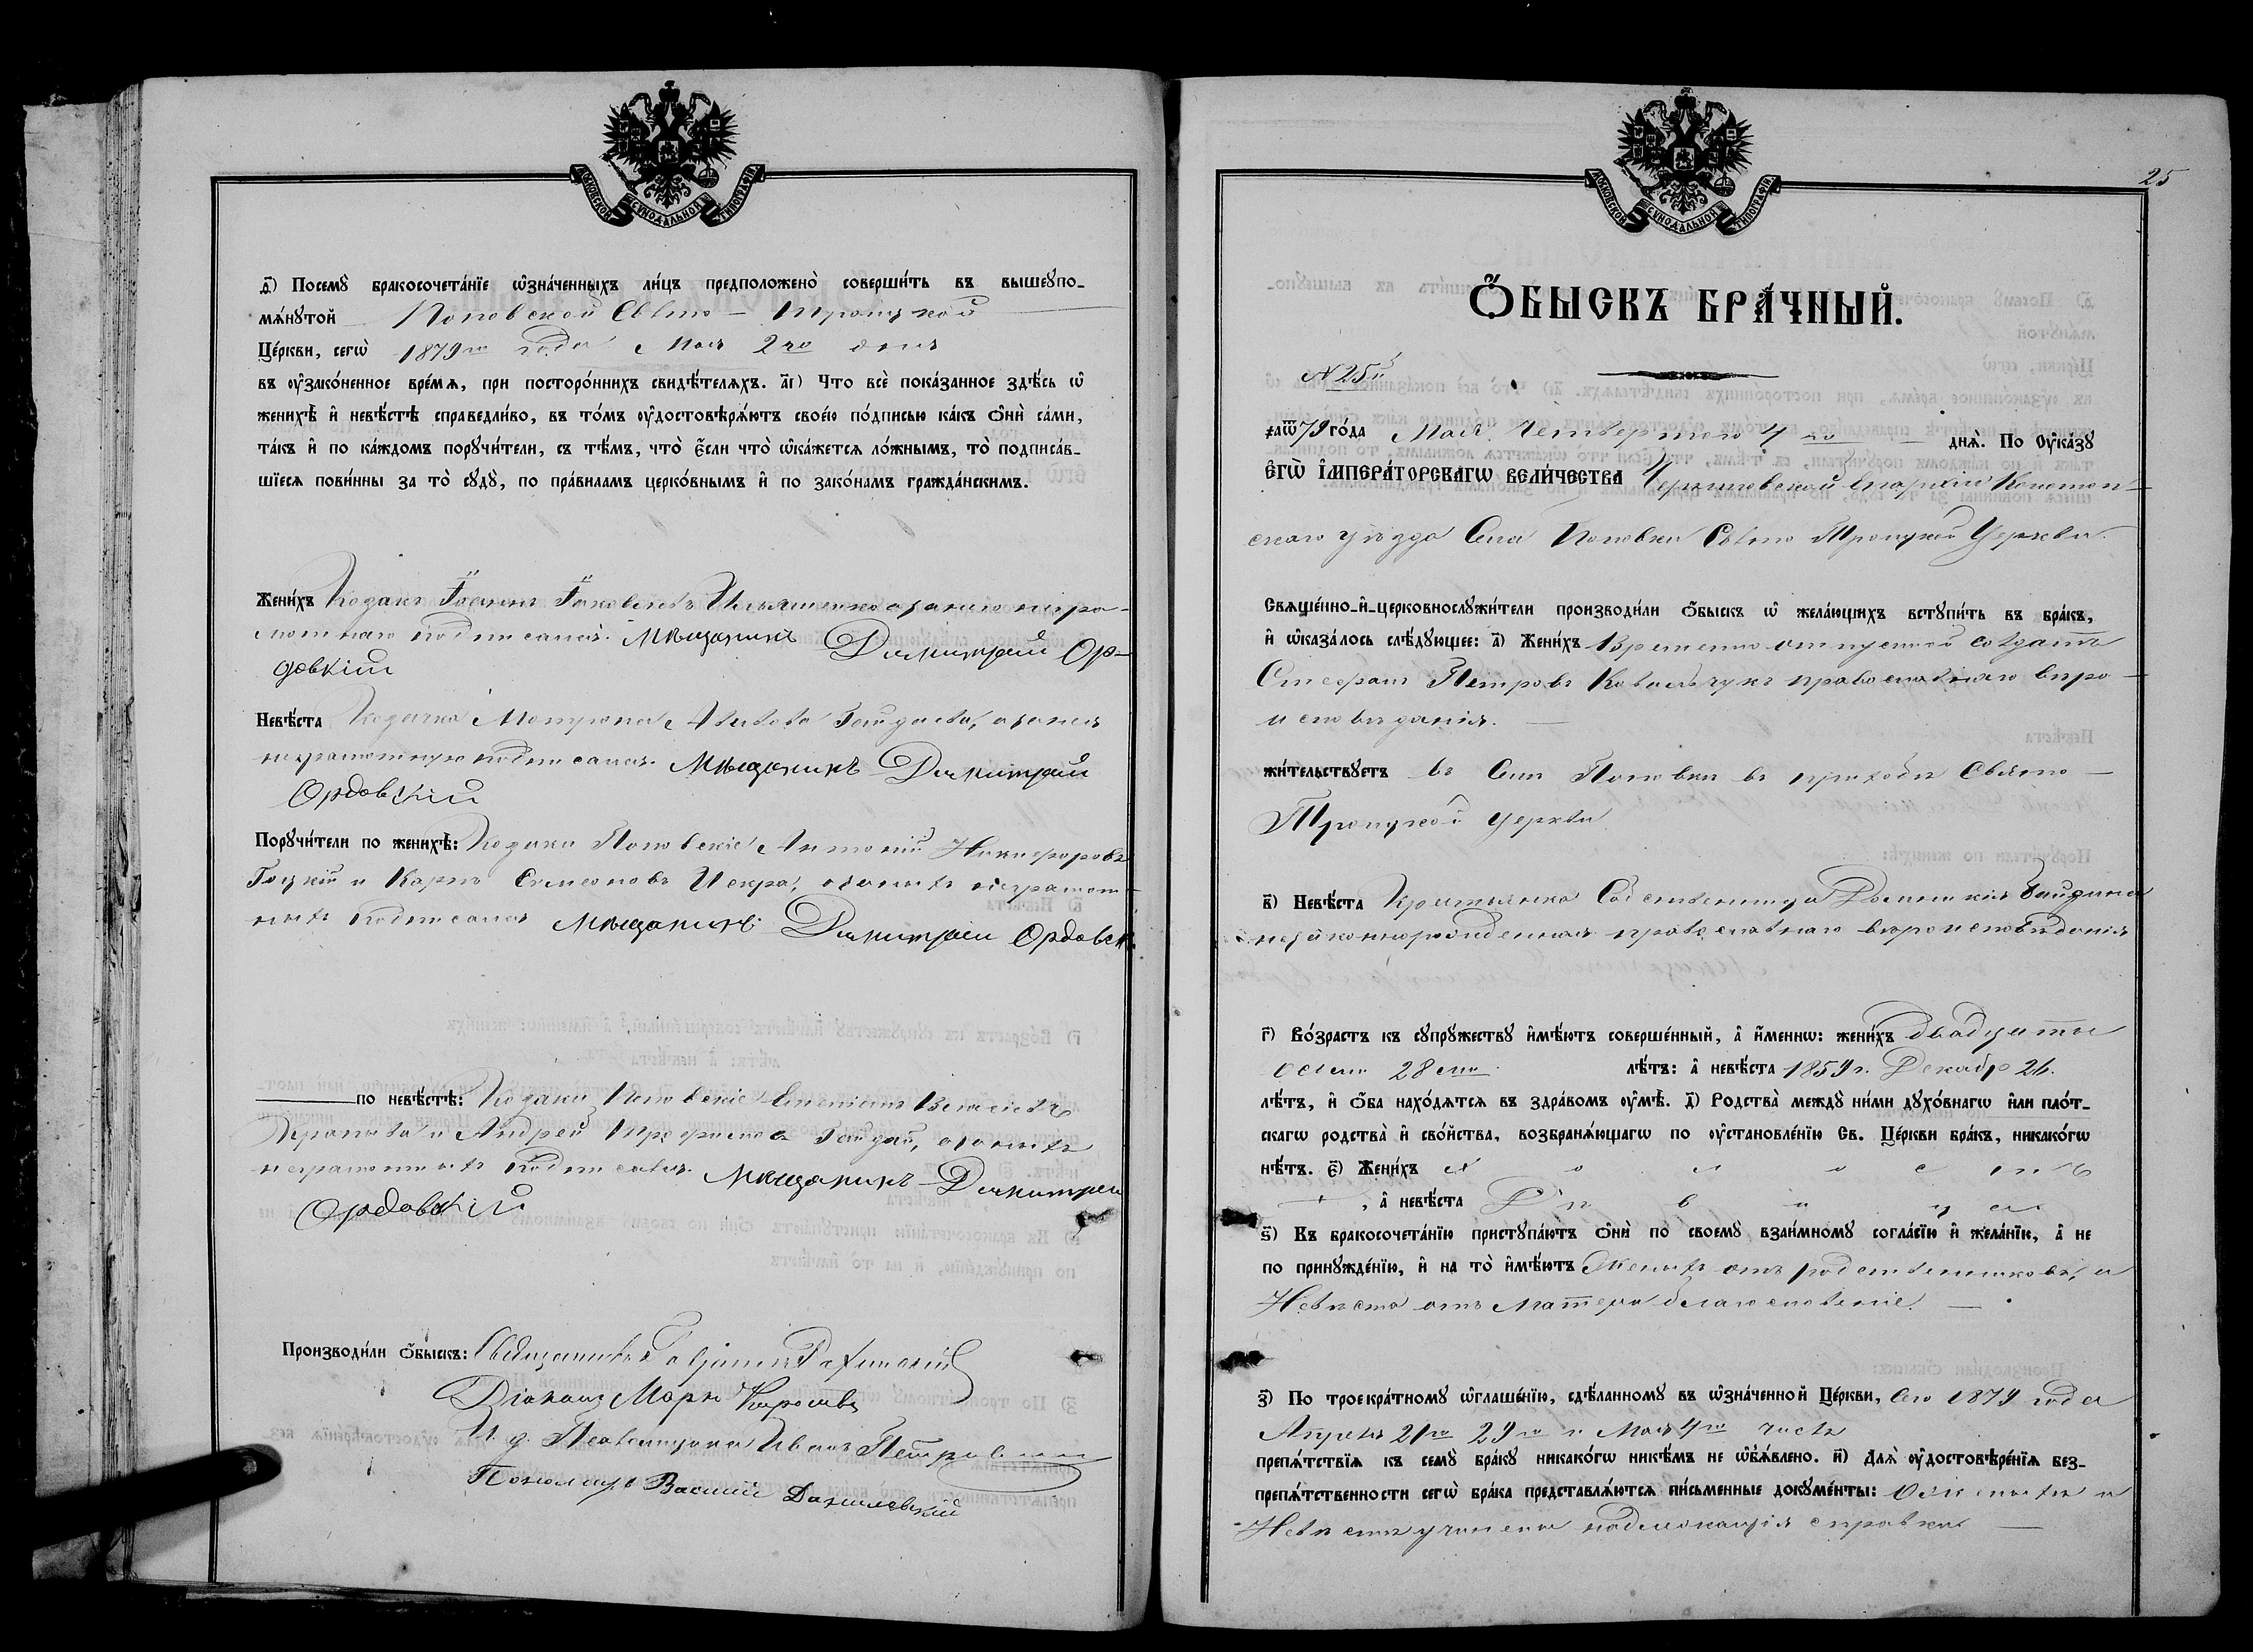 МОСКОВСКОЙ СУНОДАЛЬНОЙ ТИПОГРАФІИ.
д҃) Посемꙋ̀ бракосочета́нїе ѡ҆зна́ченныхъ ли́цъ предположено̀ соверши́ть въ вышеꙋпо-
мѧ́нꙋтой Поповской Свято-Троицкой
Це́ркви, сегѡ̀ 1879го года Мая 2го дня
въ ᲂу҆зако́ненное вре́мѧ, при посторо́ннихъ свидѣ́телѧхъ. а҃і) Что̀ всѐ пока́занное здѣ́сь ѡ҆
женихѣ̀ и҆ невѣ́стѣ справедли́во, въ то́мъ ᲂу҆достовѣрѧ́ютъ свое́ю по́дписью ка́къ ѻ҆нѝ са́ми,
та́къ и҆ по ка́ждомъ порꙋчи́тели, съ тѣ́мъ, что̀ є҆́сли что̀ ѡ҆ка́жетсѧ ло́жнымъ, то̀ подписа́в-
шїесѧ пови́нны за то̀ сꙋдꙋ̀, по пра́виламъ церко́внымъ и҆ по зако́намъ гражда́нскимъ.
Жени́хъ Козакъ Іоаннъ Іаковлевъ а за него негра-
мотнаго подписался Мещанинъ Димитрій Ор-
довкій
Невѣ́ста Козачка Мотрона Гайдаева, а за нея
неграмотную подписался Мещанинъ Димитрій
Ордовскій
Порꙋчи́тели по женихѣ̀: Козаки Поповскіе Антоній Никифоровъ
и Карпъ Симеоновъ Искра, а за нихъ неграмот-
ныхъ подписался Мещанинъ Димитрій Ордовск
по невѣ́стѣ: Козаки Поповскіе
и Андрей Трофимовъ Гайдай, а за нихъ
неграмотныхъ подписался Мещанинъ Димитрій
Ордовскій
Производи́ли ѻ҆́быскъ: Священникъ Гавріилъ
Діаконъ Марко
И. д. Псаломщика Иванъ Петров
Пономарь Василій Данилевскій
25
МОСКОВСКОЙ СУНОДАЛЬНОЙ ТИПОГРАФІИ.
Ѻ҆́БЫСКЪ БРА́ЧНЫЙ.
№ 25й
҂аѿ79 го́да Мая Четвертого 4го днѧ̀. По Оу҆ка́зꙋ
Є҆ГѠ̀ И҆МПЕРА́ТОРСКАГѠ ВЕЛИ́ЧЕСТВА Черниговской Епархіи Конотоп-
скаго уѣзда Села Поповки Свято Троицкой Церкви
Свѧще́нно-и҆-церковнослꙋжи́тели производи́ли ѻ҆́быскъ ѡ҆ жела́ющихъ встꙋпи́ть въ бра́къ,
и҆ ѡ҆каза́лось слѣ́дꙋющее: а҃) Жени́хъ Временно отпускной солдатъ
Стефанъ Петровъ Ковальчукъ православнаго вѣро-
исповѣданія.
жи́тельствꙋетъ въ Селѣ Поповки въ приходѣ Свято-
Троицкой церкви
в҃) Невѣ́ста Крестьянка Собственница Домникія Гайдина
незаконнорожденная православнаго вѣроисповѣданія
г҃) Во́зрастъ къ сꙋпрꙋ́жествꙋ и҆мѣ́ютъ соверше́нный, а҆ и҆́меннѡ: жени́хъ двадцать
осемь 28емь лѣ́тъ: а҆ невѣ́ста 1859г. Декабр 26.
лѣ́тъ, и҆ ѻ҆́ба нахо́дѧтсѧ въ здра́вомъ ᲂу҆мѣ̀. д҃) Родства̀ междꙋ̀ ни́ми дꙋхо́внагѡ и҆лѝ пло́т-
скагѡ родства̀ и҆ сво́йства, возбранѧ́ющагѡ по ᲂу҆становле́нїю Св. Це́ркви бра́къ, никако́гѡ
нѣ́тъ. є҃) Жени́хъ холостъ
, а҆ невѣ́ста Дѣвица
ѕ҃) Къ бракосочета́нїю пристꙋпа́ютъ ѻ҆нѝ по своемꙋ̀ взаи́мномꙋ согла́сїю и҆ жела́нїю, а҆ не
по принꙋжде́нїю, и҆ на то̀ и҆мѣ́ютъ Женихъ отъ родственниковъ, а
Невѣста отъ Матери благословеніе.
з҃) По троекра́тномꙋ ѡ҆глаше́нїю, сдѣ́ланномꙋ въ ѡ҆зна́ченной Це́ркви, сего 1879 года
Апреля 21го 29го и Мая 4го числъ
препѧ́тствїѧ къ семꙋ̀ бра́кꙋ никако́гѡ никѣ́мъ не ѡ҆б̾ѧ́влено. и҃) Длѧ̀ ᲂу҆достовѣре́нїѧ без-
препѧ́тственности сегѡ̀ бра́ка представлѧ́ютсѧ пи́сьменные докꙋме́нты: О женихѣ и
Невѣстѣ учинена надлежащія справки